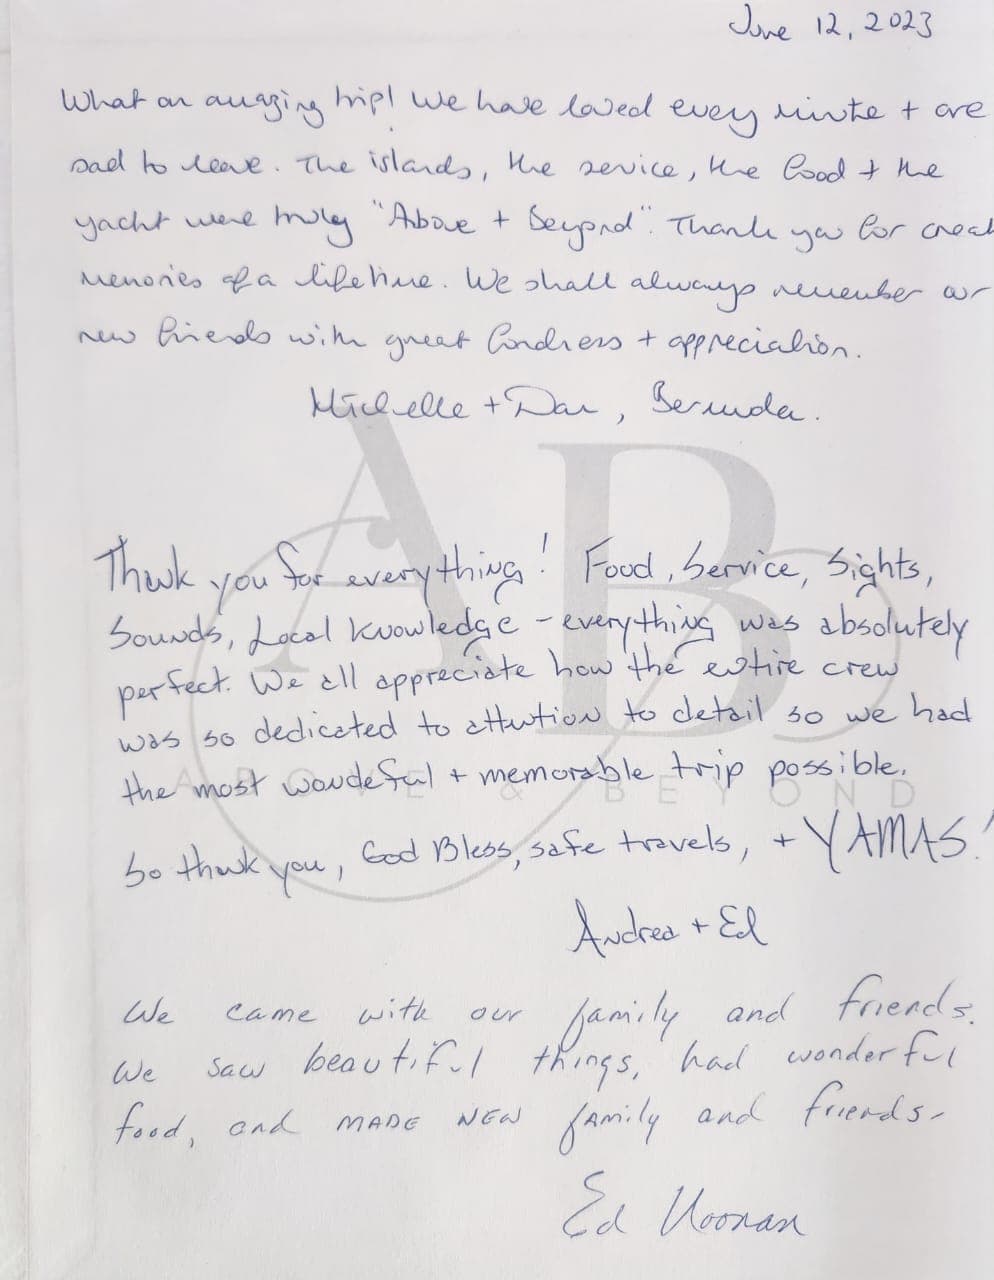 June 12, 2023
What an amazing trip! We have loved every minute + are
sad to leave. The islands, the service, the food + the
yacht were truly "Above + Beyond". Thank you for creat
memories of a lifetime. We shall always remember our
new friends with great fondness + appreciation.
Michelle + Dan, Bermuda.
AB
Thank you for everything! Food, Service, Sights,
Sounds, Local Knowledge - everything was absolutely
perfect. We all appreciate how the entire crew
was so dedicated to attention to detail so we had
the most wonderful + memorable trip possible.
ABOVE & BEYOND
So thank you, God Bless, safe travels, + YAMAS!
Andrea + Ed
We came with our family and friends.
We saw beautiful things, had wonderful
food, and MADE NEW family and friends-
Ed Noonan